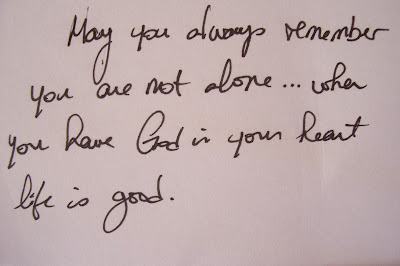 May you always remember
you are not alone... when
you have God in your heart
life is good.